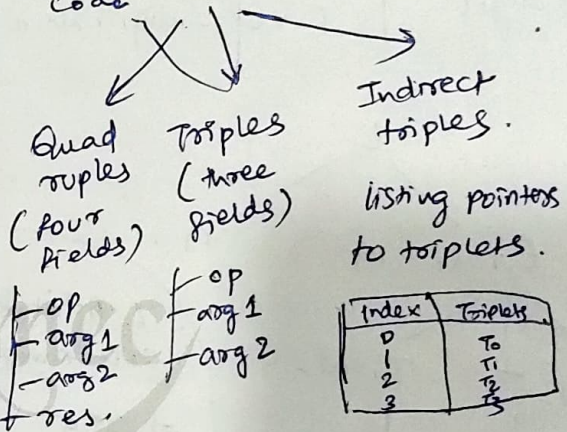 Code
Quad
ruples
(four
fields)
op
arg1
arg2
res.
Triples
(three
fields)
op
arg1
arg2
Indirect
triples.
listing pointers
to triplets.
Index Triplets
0 T0
1 T1
2 T2
3 T3